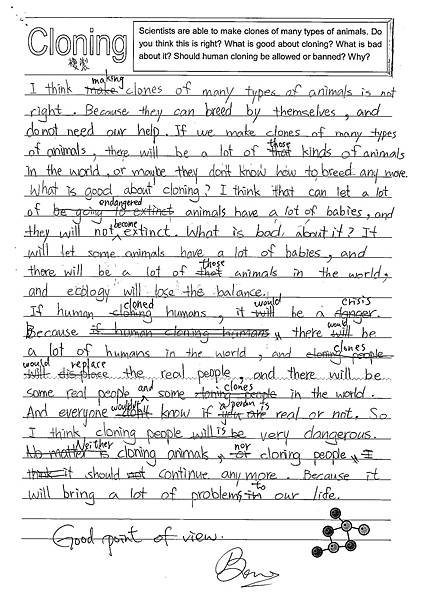 Cloning
複製
Scientists are able to make clones of many types of animals. Do
you think this is right? What is good about cloning? What is bad
about it? Should human cloning be allowed or banned? Why?
making
I think make clones of many types of animals is not
right. Because they can breed by themselves, and
do not need our help. If we make clones of many types
those
of animals, there will be a lot of that kinds of animals
in the world, or maybe they don't know how to breed any more.
What is good about cloning? I think that can let a lot
endangered
of be going to extinct animals have a lot of babies, and
become
they will not extinct. What is bad about it? It
will let some animals have a lot of babies, and
those
there will be a lot of that animals in the world,
and ecology will lose the balance.
cloned would crisis
If human cloning humans, it will be a danger.
would
Because if human cloning humans, there will be
clones
a lot of humans in the world, and cloning people
would replace
will displace the real people, and there will be
and clones
some real people some cloning people in the world.
wouldn't a person is
And everyone don't know if you are real or not. So
is
I think cloning people will be very dangerous.
Neither nor
No matter is cloning animals, or cloning people, I
think it should not continue any more. Because it
to
will bring a lot of problems in our life.
Good point of view.